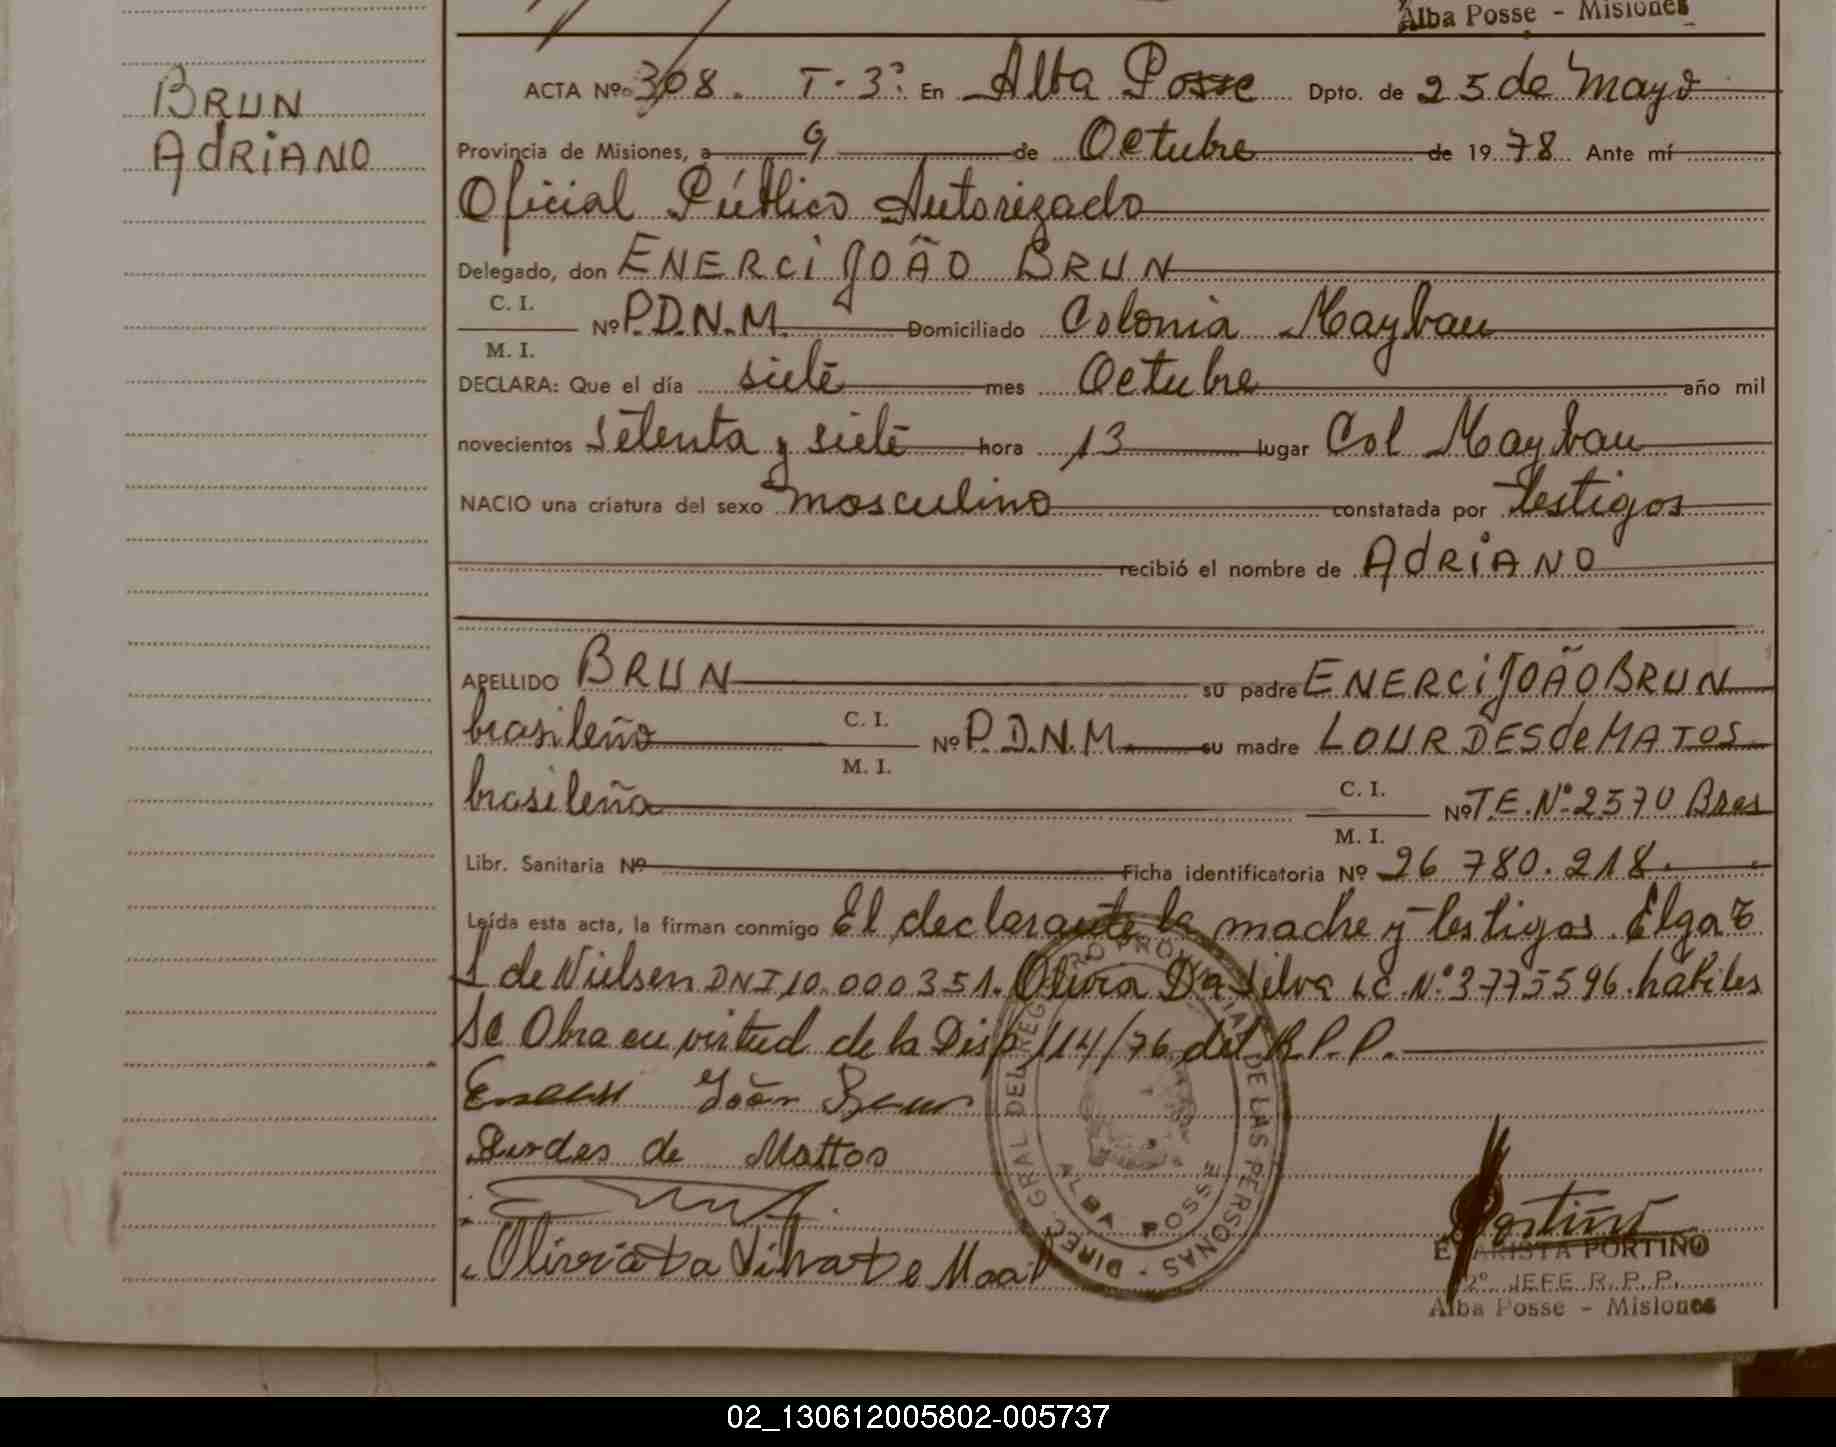 Alba Posse - Misiones
BRUN
ADRIANO
ACTA Nº 308. T-3º. En Alba Posse Dpto. de 25 de Mayo
Provincia de Misiones, a 9 de Octubre de 1978 Ante mí
Oficial Público Autorizado
Delegado, don ENERCI JOÃO BRUN
C. I.
Nº P.D.N.M. Domiciliado Colonia Maybau
M. I.
DECLARA: Que el día siete mes Octubre año mil
novecientos setenta y siete hora 13 lugar Col Maybau
NACIO una criatura del sexo masculino constatada por testigos
recibió el nombre de ADRIANO
APELLIDO BRUN su padre ENERCI JOÃO BRUN
brasileño C. I. Nº P.D.N.M. su madre LOURDES de MATOS
M. I.
brasileña C. I. Nº T.E. Nº 2570 Bras
M. I.
Libr. Sanitaria Nº Ficha identificatoria Nº 26 780.218.
Leída esta acta, la firman conmigo El declarante la madre y testigos. Elga
de Nielsen DNI 10.000351. Olivia Da Silva LC. Nº 3775596. hábiles
Se Obra en virtud de la Disp 114/76 del R.P.P.
João Brun
Lurdes de Mattos
Olivia da Silva de
DIREC. GRAL DEL REGISTRO PROVINCIAL DE LAS PERSONAS
ALBA POSSE
Portiño
EVARISTA PORTIÑO
2º JEFE R. P. P.
Alba Posse - Misiones
02_130612005802-005737